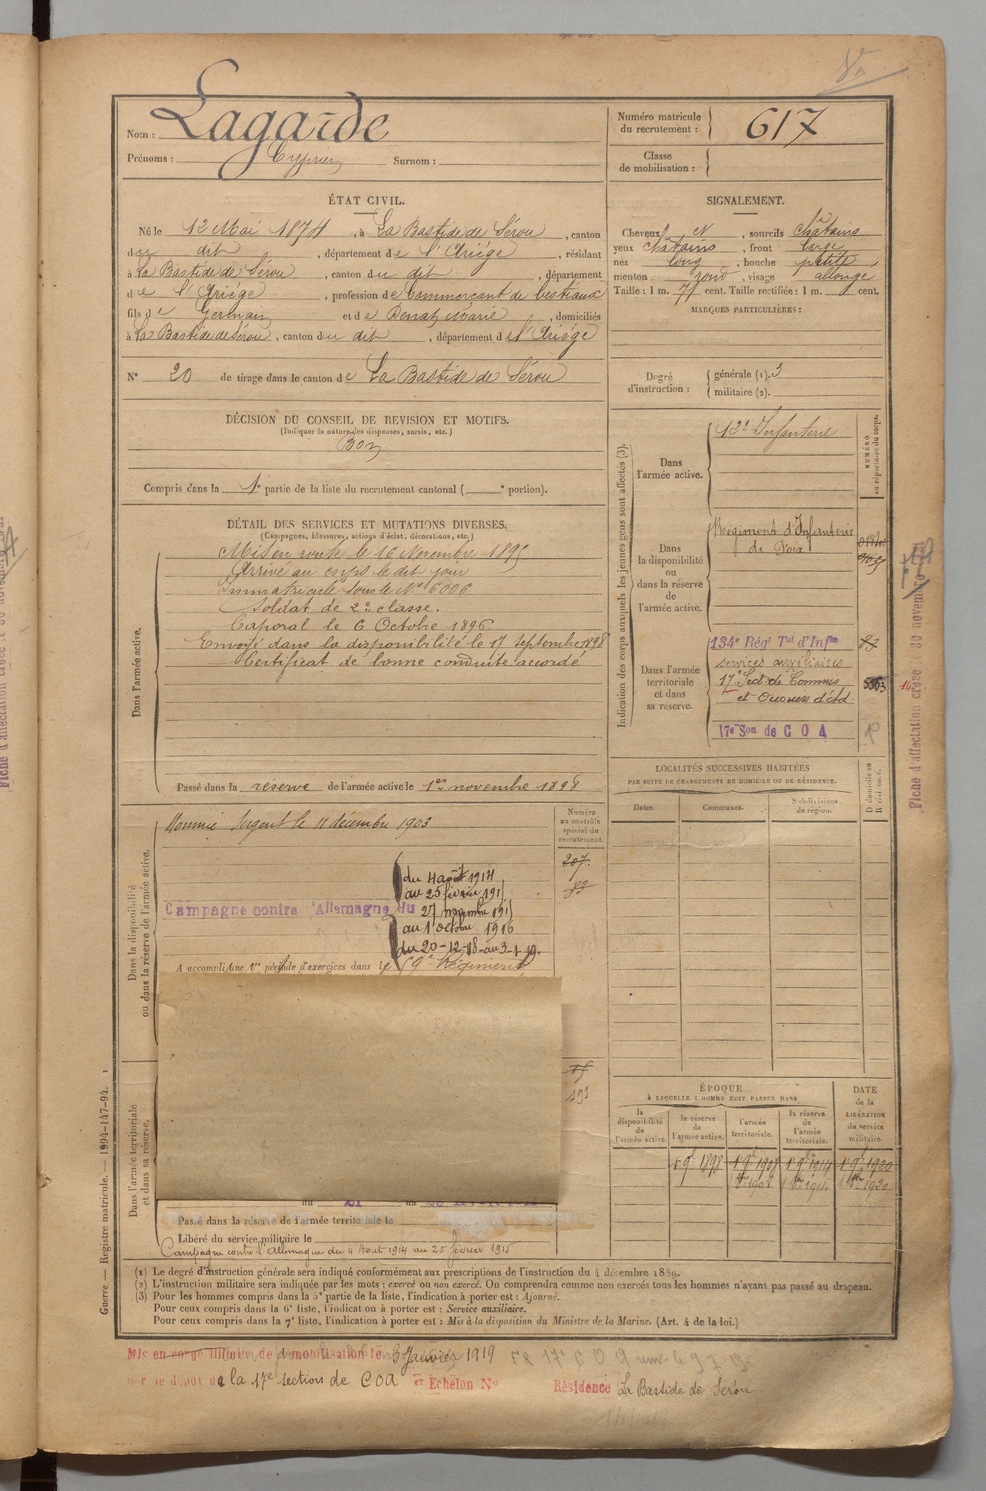 Nom : Lagarde
Prénoms : Cyprien Surnom :
Numéro matricule du recrutement : 617
Classe de mobilisation :
ÉTAT CIVIL.
Né le 12 Mai 1874, à La Bastide de Sérou, canton
du dit, département de l'Ariége, résidant
à La Bastide de Sérou, canton du dit, département
de l'Ariége, profession de Commerçant de bestiaux
fils de Germain et de Marie, domiciliés
à La Bastide de Sérou, canton du dit, département de l'Ariége
N° 20 de tirage dans le canton de La Bastide de Sérou
SIGNALEMENT.
Cheveux et, sourcils châtains
yeux châtains, front large
nez long, bouche petite
menton rond, visage allongé
Taille : 1 m. 71 cent. Taille rectifiée : 1 m. cent.
MARQUES PARTICULIÈRES :
Degré d'instruction : générale (1). 3
militaire (2).
DÉCISION DU CONSEIL DE REVISION ET MOTIFS.
(Indiquer la nature des dispenses, sursis, etc.)
Bon
Compris dans la 1e partie de la liste du recrutement cantonal ( e portion).
DÉTAIL DES SERVICES ET MUTATIONS DIVERSES.
(Campagnes, blessures, actions d'éclat, décorations, etc.)
Dans l'armée active.
Mis en route le 16 Novembre 1895
Arrivé au corps le dit jour
Immatriculé sous le N° 6006
Soldat de 2e classe.
Caporal le 6 Octobre 1896
Envoyé dans la disponibilité le 17 Septembre 1898
Certificat de bonne conduite accordé
Passé dans la réserve de l'armée active le 1er novembre 1898
Indication des corps auxquels les jeunes gens sont affectés (3).
NUMÉRO au répertoire du corps.
Dans l'armée active.
12e Infanterie
Dans la disponibilité ou dans la réserve de l'armée active.
Régiment d'Infanterie
de Foix
Dans l'armée territoriale et dans sa réserve.
134e Régt Tal d'Infie
services auxiliaires
17e Sect de Commis
et Ouvriers d'Ad
17e Son de C O A
LOCALITÉS SUCCESSIVES HABITÉES
PAR SUITE DE CHANGEMENTS DE DOMICILE OU DE RÉSIDENCE.
Dates. Communes. Subdivisions de région. D domicile ou R résidence.
Dans la disponibilité ou dans la réserve de l'armée active.
Numéro au contrôle spécial du recrutement.
Nommé Sergent le 11 décembre 1903
207
du 4 août 1914
au 25 février 191
Campagne contre l'Allemagne du 27 novembre 191
au 1 octobre 1916
du 20-12-18 au 3-1-19.
A accompli une 1re période d'exercices dans le 59e Régiment
Dans l'armée territoriale et dans sa réserve.
Passé dans la réserve de l'armée territoriale le
Libéré du service militaire le
Campagne contre l'Allemagne du 4 Août 1914 au 25 février 1915
ÉPOQUE
À LAQUELLE L'HOMME DOIT PASSER DANS
DATE de la LIBÉRATION du service militaire.
la disponibilité de l'armée active. la réserve de l'armée active. l'armée territoriale. la réserve de l'armée territoriale.
(1) Le degré d'instruction générale sera indiqué conformément aux prescriptions de l'instruction du 4 décembre 1889.
(2) L'instruction militaire sera indiquée par les mots : exercé ou non exercé. On comprendra comme non exercés tous les hommes n'ayant pas passé au drapeau.
(3) Pour les hommes compris dans la 5e partie de la liste, l'indication à porter est : Ajourné.
Pour ceux compris dans la 6e liste, l'indication à porter est : Service auxiliaire.
Pour ceux compris dans la 7e liste, l'indication à porter est : Mis à la disposition du Ministre de la Marine. (Art. 4 de la loi.)
Mis en congé illimité de démobilisation le 3 Janvier 1919
par le dépôt de la 17e section de COA et Echelon N° Résidence La Bastide de Serou
Guerre — Registre matricule. — 1994-147-94.
Fiche d'affectation créée le 30 novembre